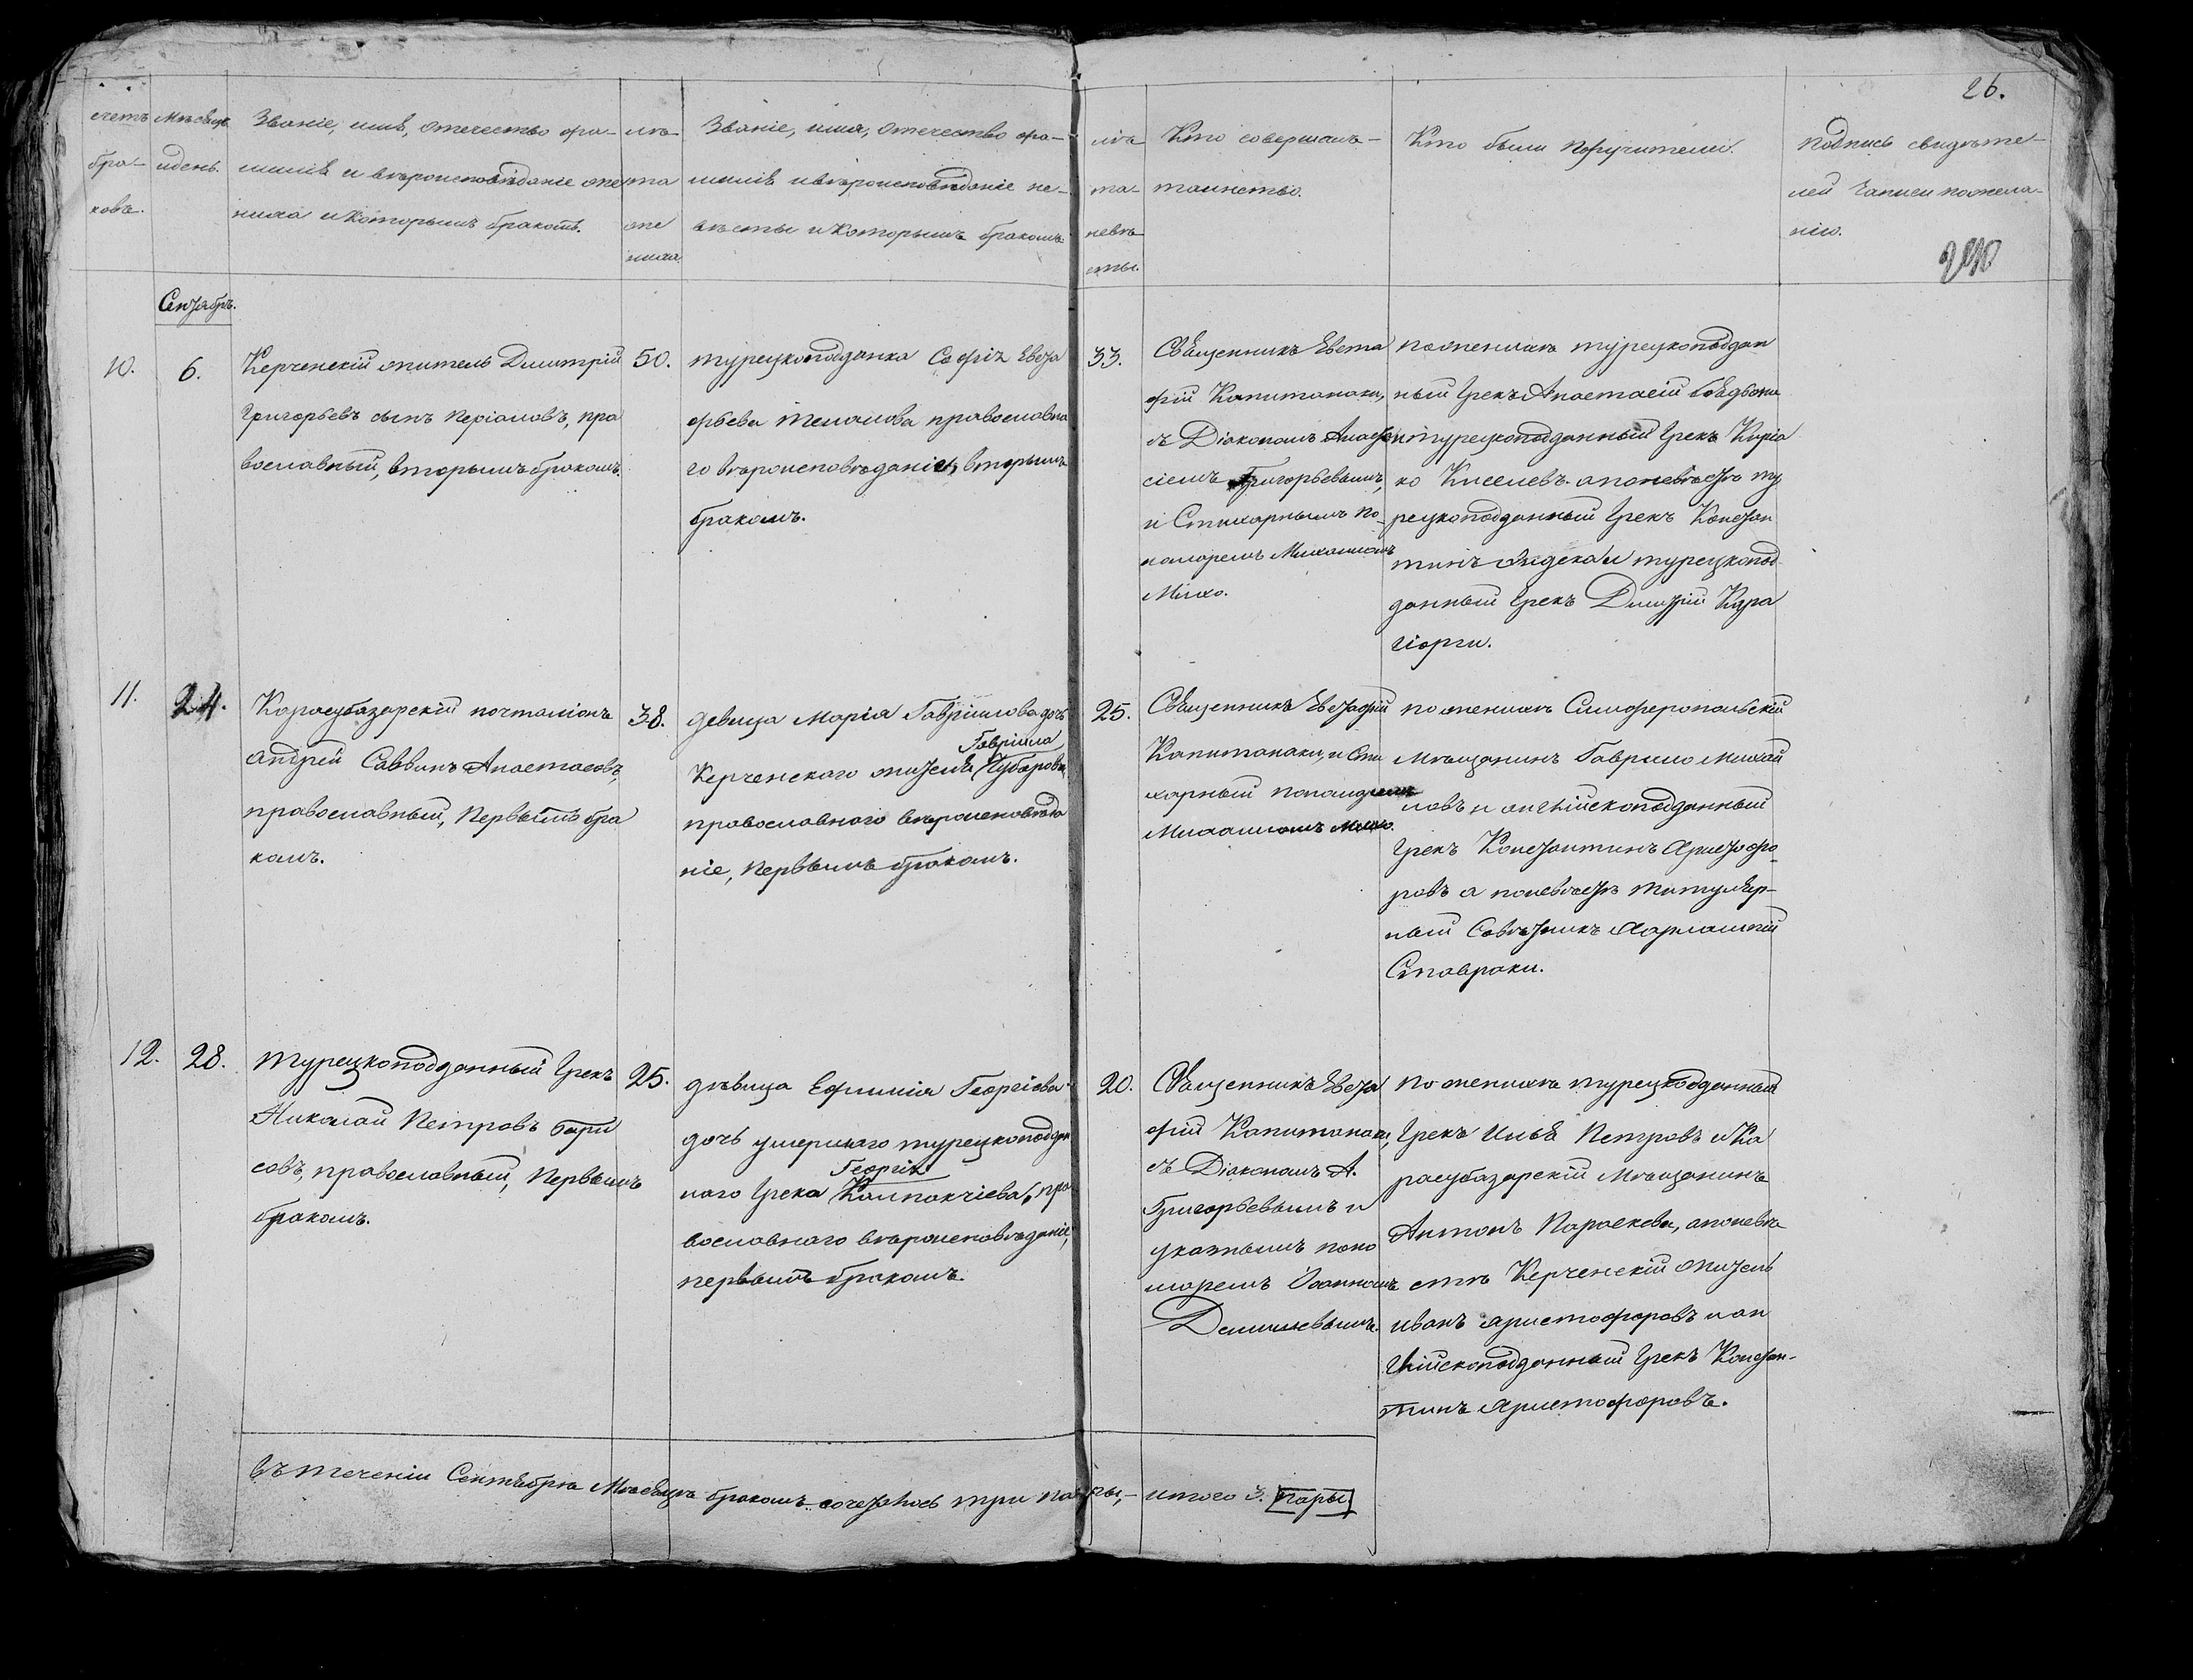 26.
счетъ бра- ковъ.
Мѣсяцъ и день.
Званіе, имя, отечество фа-
милія и вѣроисповѣданіе же
ниха и которымъ бракомъ.
лѣ-
та
же
ниха.
Званіе, имя, отечество фа-
милія и вѣроисповѣданіе не-
вѣсты и которымъ бракомъ.
лѣ-
та-
невѣ-
сты.
Кто совершалъ-
таинство.
Кто были поручители.
подпись свидѣте-
лей записи по жела-
нію.
Сентябрь.
10.
6.
Керченскій житель Дмитрій
Григорьевъ сынъ Періаловъ, пра
вославный, вторымъ бракомъ.
50.
турецкоподданка Софія Евста
фьева православна
го вѣроисповѣданія, вторымъ
бракомъ.
33.
Священникъ Евста
фій Капитанаки,
съ Діакономъ Анаста
сіемъ Григорьевымъ,
и Стихарнымъ по-
номаремъ Михаиломъ
Михо.
по женихѣ турецкоподдан
ный Грекъ Анастасій
и турецкоподданный Грекъ Киріа
ко Киселевъ. а по невѣстѣ ту
рецкоподданный Грекъ Констан
тинъ и турецкопод
данный Грекъ Дмитрій Кара
гіорги.
11.
24.
Карасубазарскій почталіонъ
Андрей Саввинъ Анастасовъ,
православный, первымъ бра
комъ.
38.
девица Марія Гавріилова дочь
Гавріила
Керченскаго жителя Чубарова
православнаго вѣроисповѣда
ніе, первымъ бракомъ.
25.
Священникъ Евстафій
Капитанаки, и Сти
харный понамремъ
Михаиломъ Михо.
по женихѣ Симферопольскій
Мѣщанинъ Гаврило Михай
ловъ и англійскоподданный
Грекъ Константинъ Аристофо-
ровъ а по невѣстѣ титуляр-
ный Совѣтникъ Харлампій
Ставраки.
12.
28.
Турецкоподданный Грекъ
Николай Петровъ Бари
совъ, православный, первымъ
бракомъ.
25.
дѣвица Ефимія Георгіева
дочь умершаго турецкоподдан
Георгія
наго Грека Калпакчіева, пра
вославнаго вѣроисповѣданіе,
первымъ бракомъ.
20.
Священникъ Евста
фій Капитанаки,
съ Діакономъ А.
Григорьевымъ и
указнымъ поно
маремъ Іоанномъ
по женихѣ турецкоподданный
Грекъ Илья Петровъ и Ка
расубазарскій Мѣщанинъ
Антонъ Параскева, а по невѣ
стѣ Керченскій житель
Иванъ Аристофоровъ и ан
глійскоподданный Грекъ Констан-
тинъ Аристофоровъ.
въ теченіи Сентября Мѣсяца бракомъ сочеталось три пары,- итого 3. пары